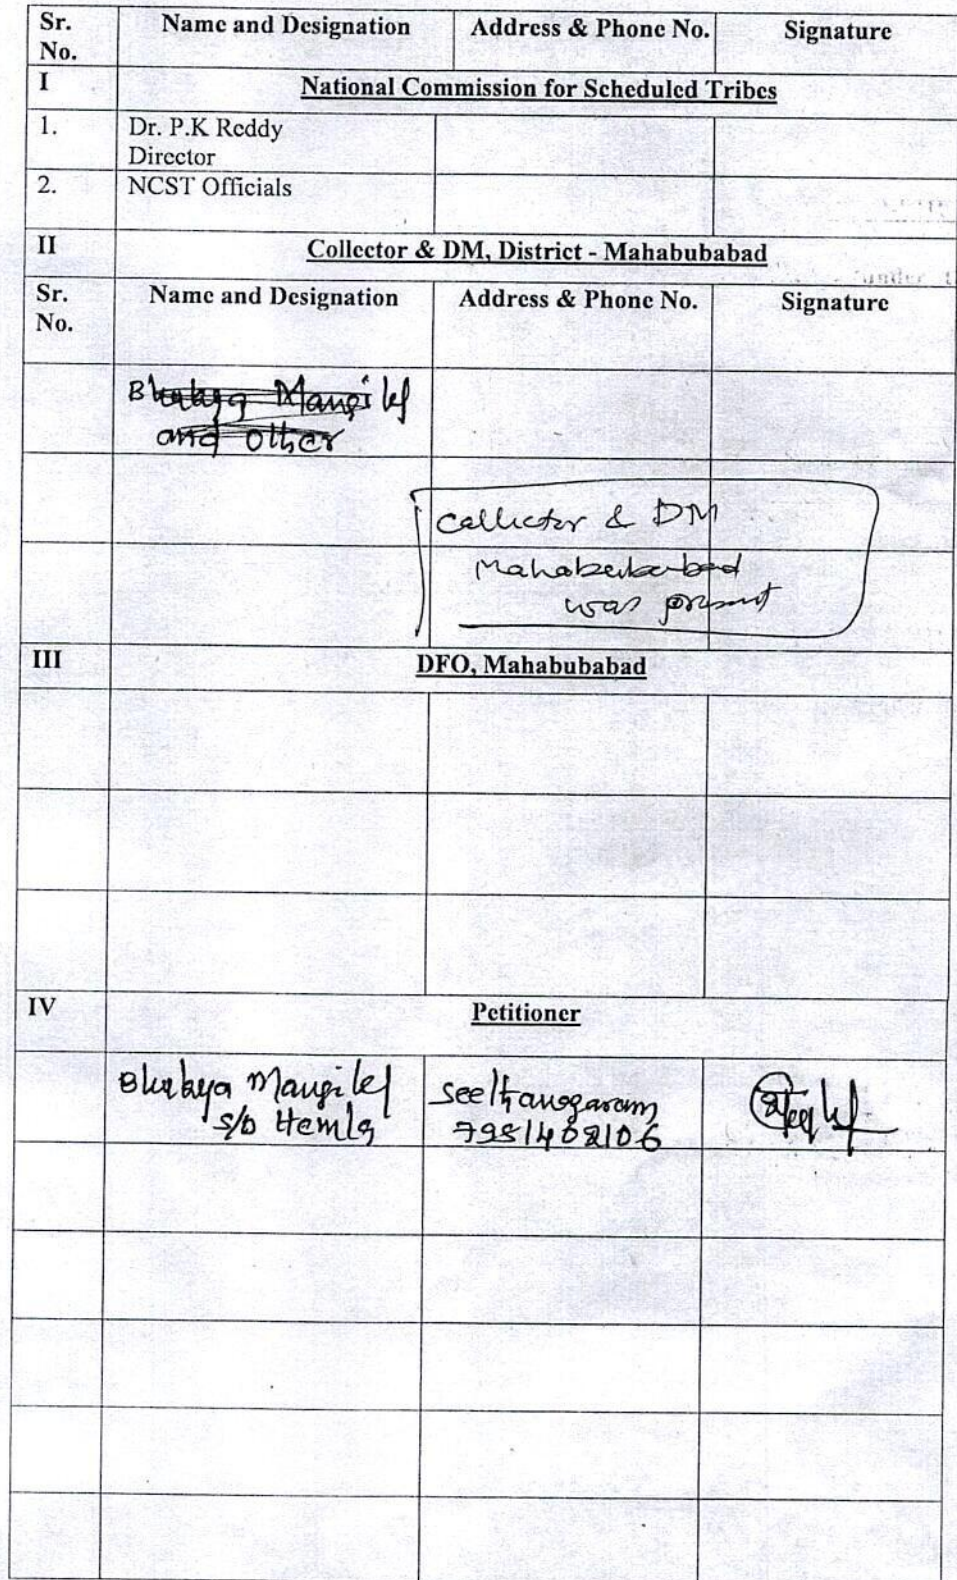 Sr. No. Name and Designation Address & Phone No. Signature
I National Commission for Scheduled Tribes
1. Dr. P.K Reddy
Director
2. NCST Officials
II Collector & DM, District - Mahabubabad
under
Sr. No. Name and Designation Address & Phone No. Signature
and other
Collector & DM
Mahabubabad
was present
III DFO, Mahabubabad
IV Petitioner
Bhukya Mangilal
S/o Hemla
7981402106